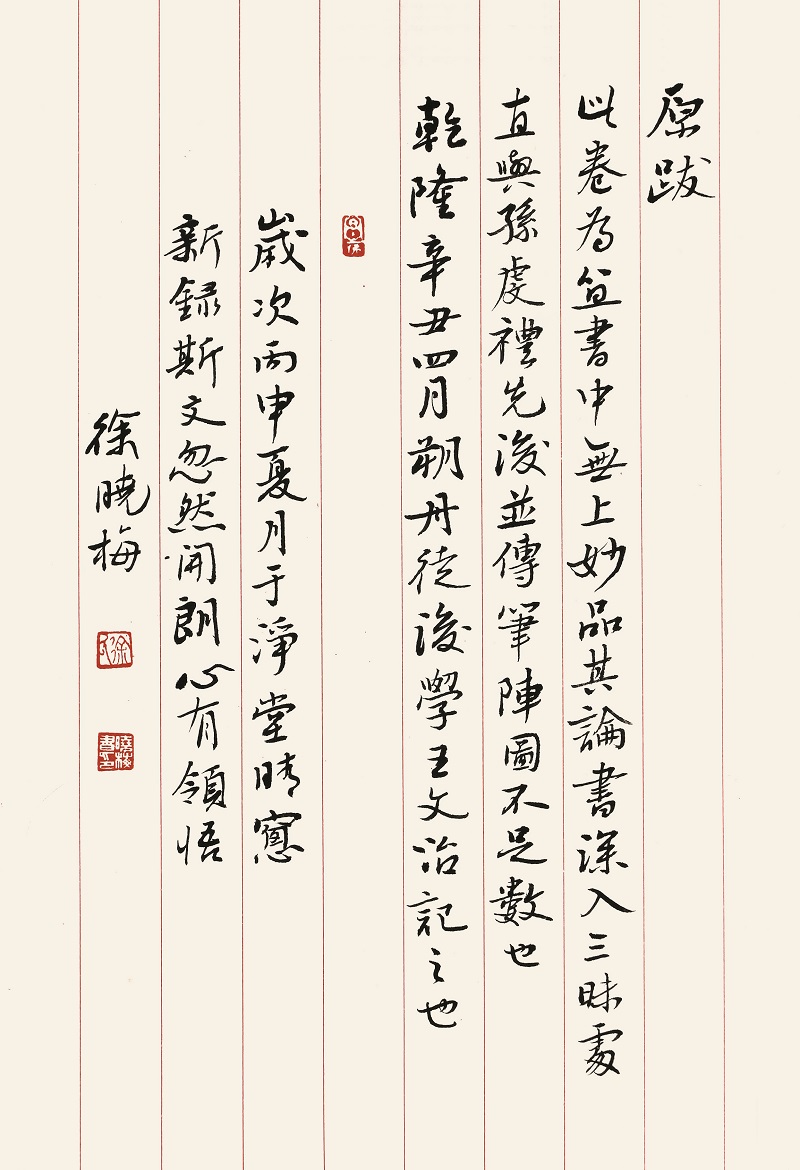 原跋
此卷為笪書中無上妙品其論書深入三昧處
直與孫虔禮先後並傳筆陣圖不足數也
乾隆辛丑四月朔丹徒後學王文治記之也
歲次丙申夏月于淨堂晴窻
新録斯文忽然開朗心有領悟
徐曉梅
徐氏
曉梅書印